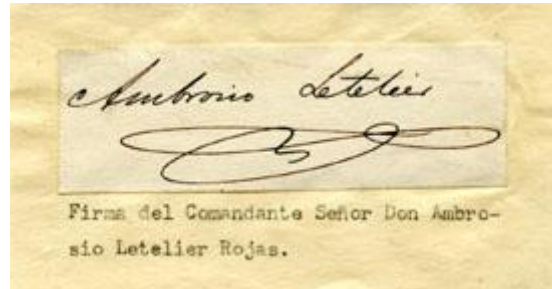 Ambrosio Letelier
Firma del Comandante Señor Don Ambro-
sio Letelier Rojas.